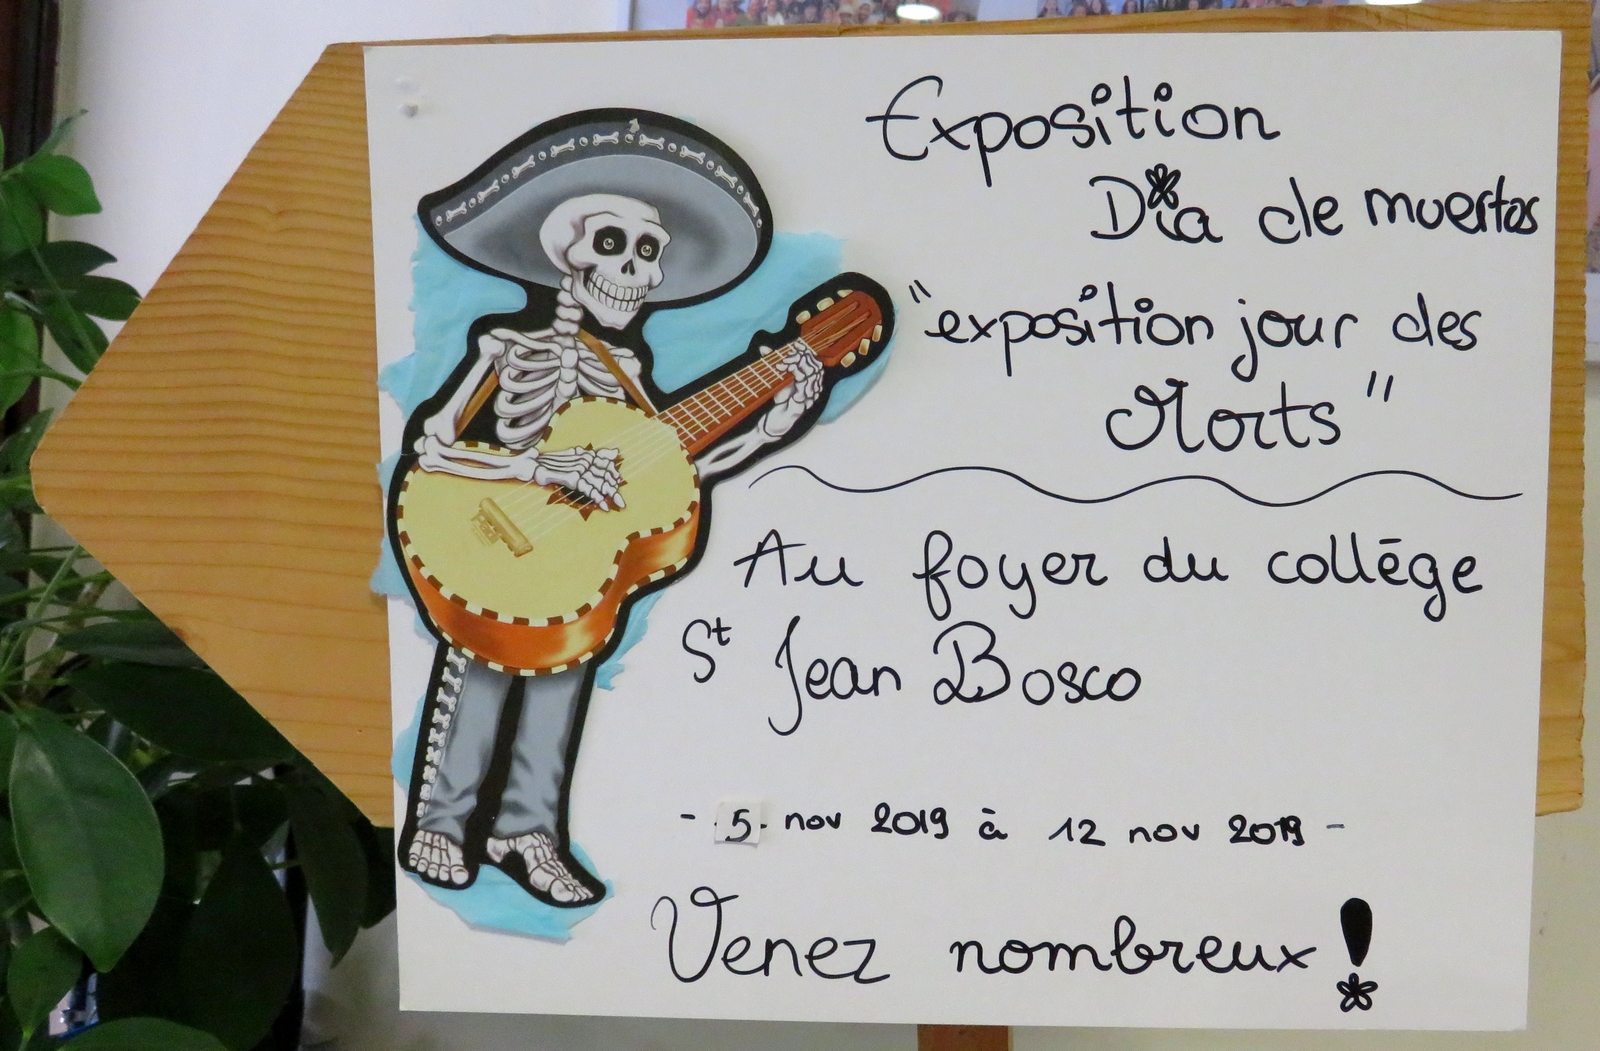 Exposition
Dia de muertos
"exposition jour des
Morts"
Au foyer du collège
St Jean Bosco
- 5. nov 2019 à 12 nov 2019 -
Venez nombreux !